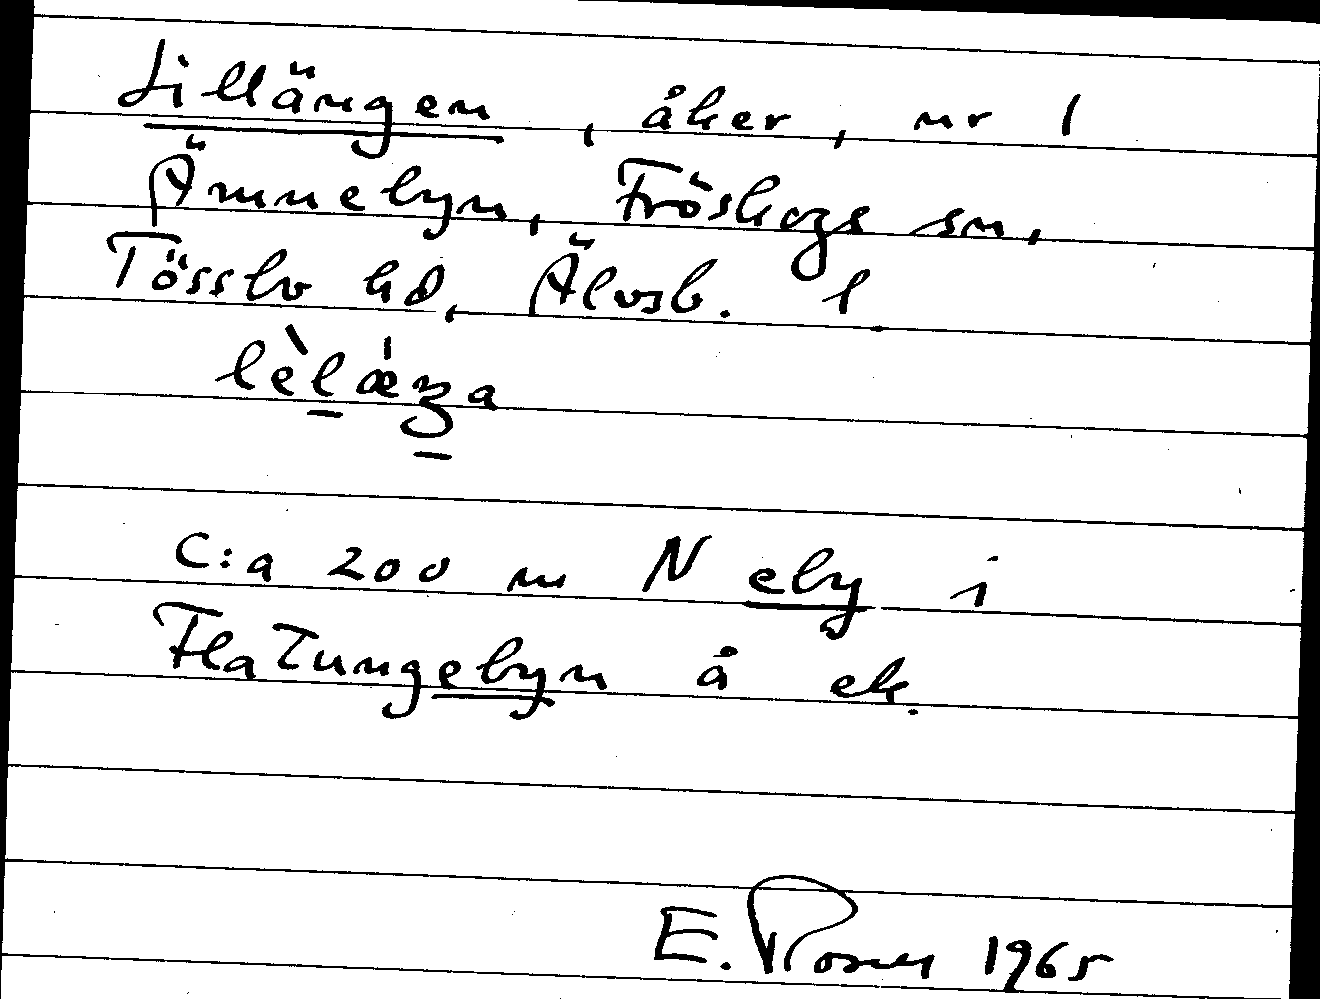 Lillängen, åker, nr 1
Ämnebyn, Fröskogs sn,
Tössbo hd, Älvsb. l.
lèlæ̀ŋa
C:a 200 m N eby i
Flatungebyn å ek.
E. Rosell 1965